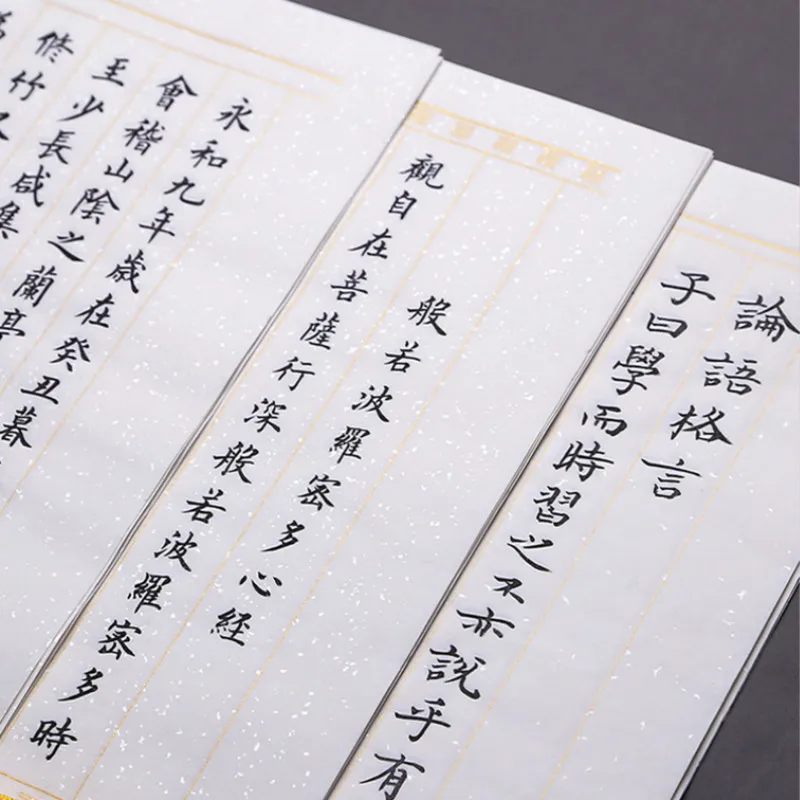 論語格言
子曰學而時習之不亦說乎有
般若波羅密多心経
觀自在菩薩行深般若波羅密多時
永和九年歲在癸丑暮
會稽山陰之蘭亭
至少長咸集
脩竹又